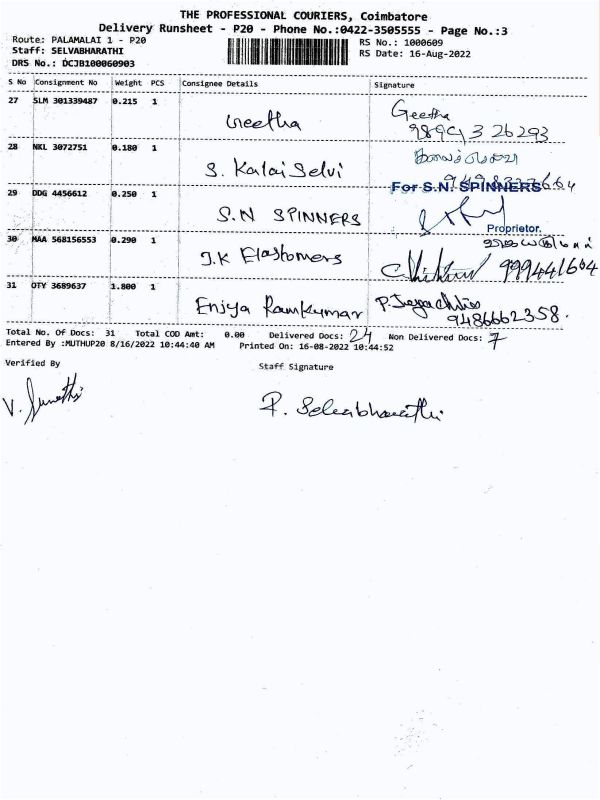 THE PROFESSIONAL COURIERS, Coimbatore
Delivery Runsheet - P20 - Phone No.:0422-3505555 - Page No.:3
Route: PALAMALAI 1 - P20
RS No.: 1000609
Staff: SELVABHARATHI
RS Date: 16-Aug-2022
DRS No.: DCJB100060903
S No Consignment No Weight PCS Consignee Details Signature
27 SLM 301339487 0.215 1 Geetha Geetha
28 NKL 3072751 0.180 1 S. KalaiSelvi
29 DDG 4456612 0.250 1 S.N SPINNERS For S.N. SPINNERS
Proprietor.
30 MAA 568156553 0.290 1 J.K Elastomers
31 OTY 3689637 1.800 1 Enjya Ramkumar
9486662358.
Total No. Of Docs: 31 Total COD Amt: 0.00 Delivered Docs: 24 Non Delivered Docs: 7
Entered By :MUTHUP20 8/16/2022 10:44:40 AM Printed On: 16-08-2022 10:44:52
Verified By Staff Signature